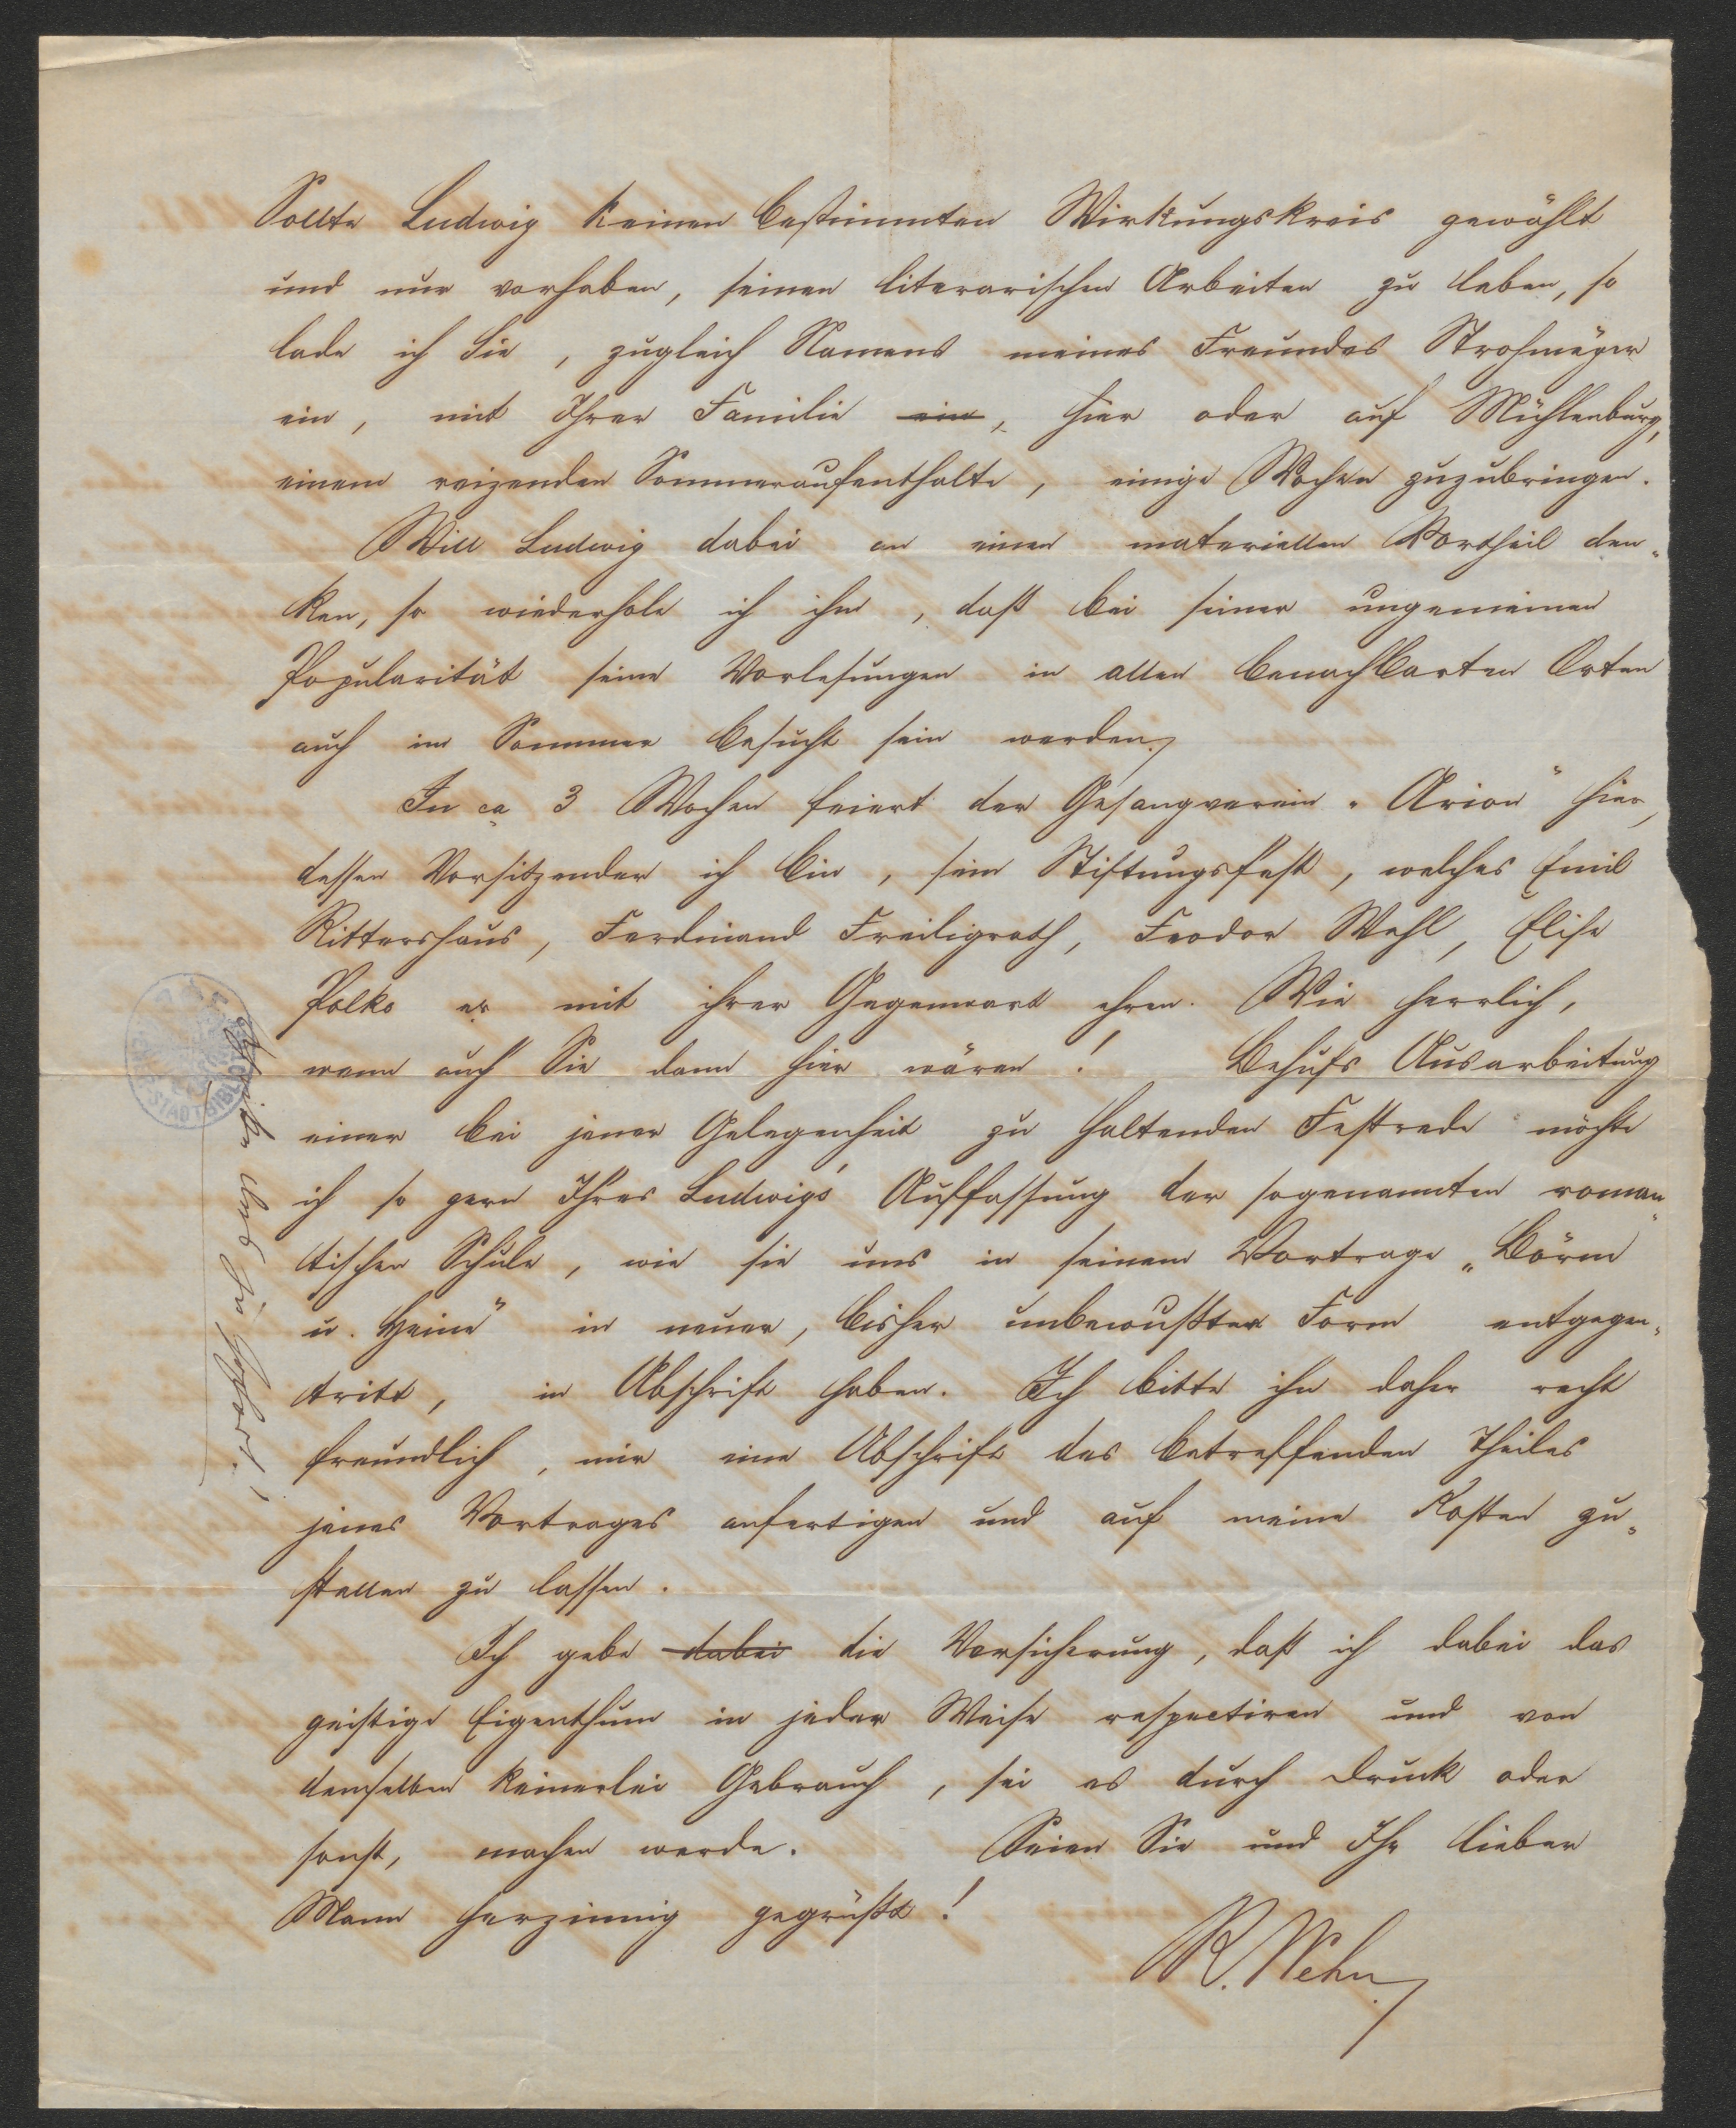 Sollte Ludwig keinen bestimmten Wirkungskreis gewählt
und nur vorhaben, seinen literarischen Arbeiten zu leben, so
lade ich Sie, zugleich Namens meines Freundes Strohmeyer
ein, mit Ihrer Familie ein, hier oder auf Mühlenburg,
einem reizenden Sommeraufenthalte, einige Wochen zuzubringen.
Will Ludwig dabei an einen materiellen Vortheil den-
ken, so wiederhole ich ihm, daß bei seiner ungemeinen
Popularität seine Vorlesungen in allen benachbarten Orten
auch im Sommer besucht sein werden.
In ca 3 Wochen feiert der Gesangverein „Arion" hier,
dessen Vorsitzender ich bin, sein Stiftungsfest, welches Emil
Rittershaus, Ferdinand Freiligrath, Feodor Wehl, Elise
Polko mit ihrer Gegenwart ehren. Wie herrlich,
wenn auch Sie dann hier wären! Behufs Ausarbeitung
einer bei jener Gelegenheit zu haltenden Festrede möchte
ich so gern Ihres Ludwig's Auffassung der sogenannten roman-
tischen Schule, wie sie uns in seinem Vortrage „Börne
u. Heine" in neuer, bisher unbewußter Form entgegen-
tritt, in Abschrift haben. Ich bitte ihn daher recht
freundlich, mir eine Abschrift des betreffenden Theiles
jenes Vortrages anfertigen und auf meine Kosten zu-
stellen zu lassen.
Ich gebe dabei die Versicherung, daß ich dabei das
geistige Eigenthum in jeder Weise respectiren und von
demselben keinerlei Gebrauch, sei es durch Druck oder
sonst, machen werde. Seien Sie und Ihr lieber
Mann herzinnig gegrüßt!
R. Wehn
STADTBIBL